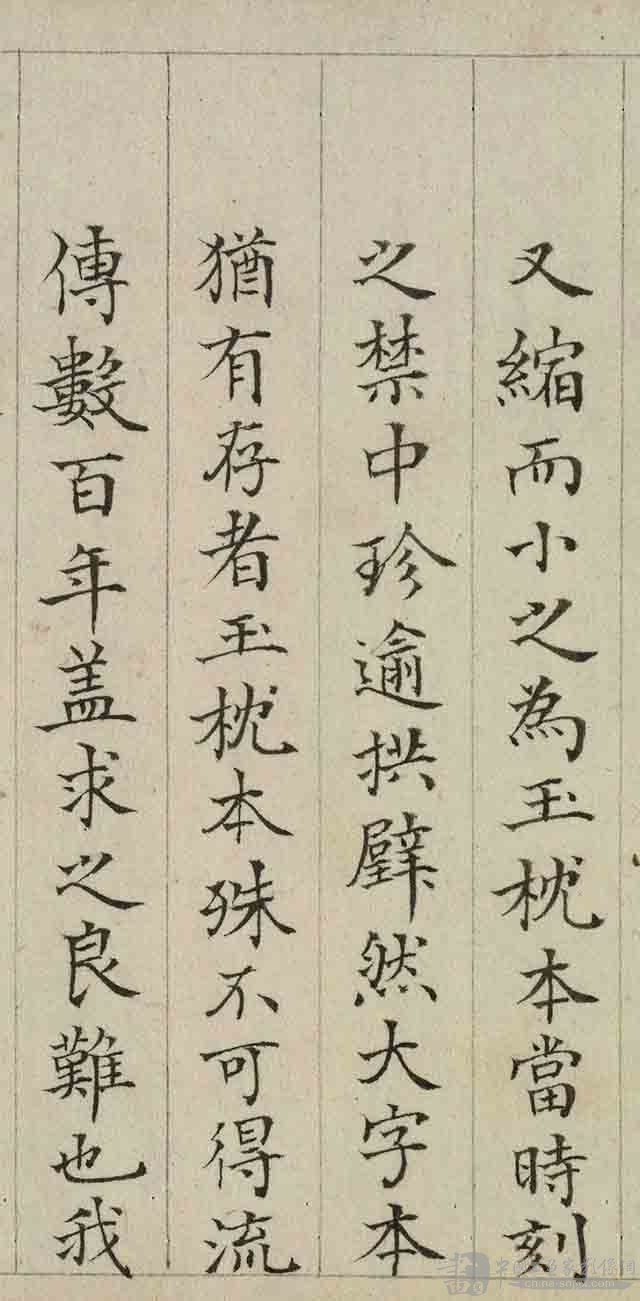 又縮而小之為玉枕本當時刻
之禁中珍逾拱璧然大字本
猶有存者玉枕本殊不可得流
傳數百年盖求之良難也我